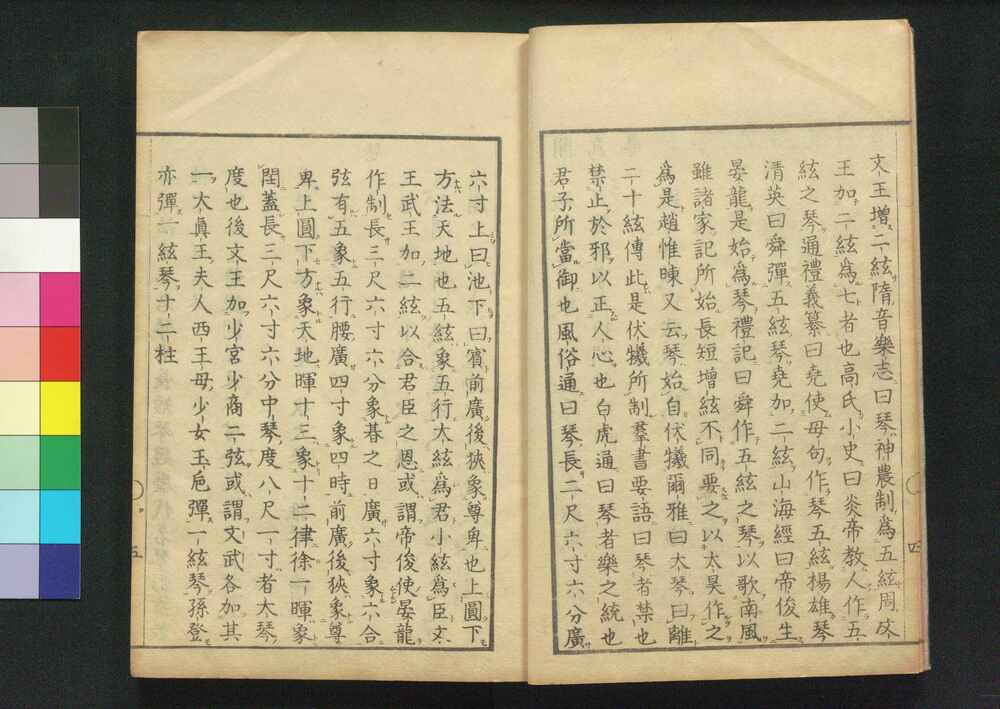 文王增二絃隋音樂志曰琴神農制爲五絃周文
王加二絃爲七者也高氏小史曰炎帝教人作五
絃之琴通禮義纂曰堯使母句作琴五絃楊雄琴
清英曰舜彈五絃琴堯加二絃山海經曰帝俊生
晏龍是始爲琴禮記曰舜作五絃之琴以歌南風
雖諸家記所始長短增絃不同要之以太昊作之
爲是趙惟暕又云琴始自伏犧爾雅曰大琴曰離
二十絃傳此是伏犧所制羣書要語曰琴者禁也
禁止於邪以正人心也白虎通曰琴者樂之統也
君子所當御也風俗通曰琴長三尺六寸六分廣
六寸上曰池下曰賓前廣後狹象尊卑也上圓下
方法天地也五絃象五行大絃爲君小絃爲臣文
王武王加二絃以合君臣之恩或謂帝俊使晏龍
作制長三尺六寸六分象朞之日廣六寸象六合
弦有五象五行腰廣四寸象四時前廣後狹象尊
卑上圓下方象天地暉十三象十二律徐一暉象
閏蓋長三尺六寸六分中琴度八尺一寸者大琴
度也後文王加少宮少商二弦或謂文武各加其
一大眞王夫人西王母少女玉巵彈一絃琴孫登
亦彈一絃琴十二柱
四
五